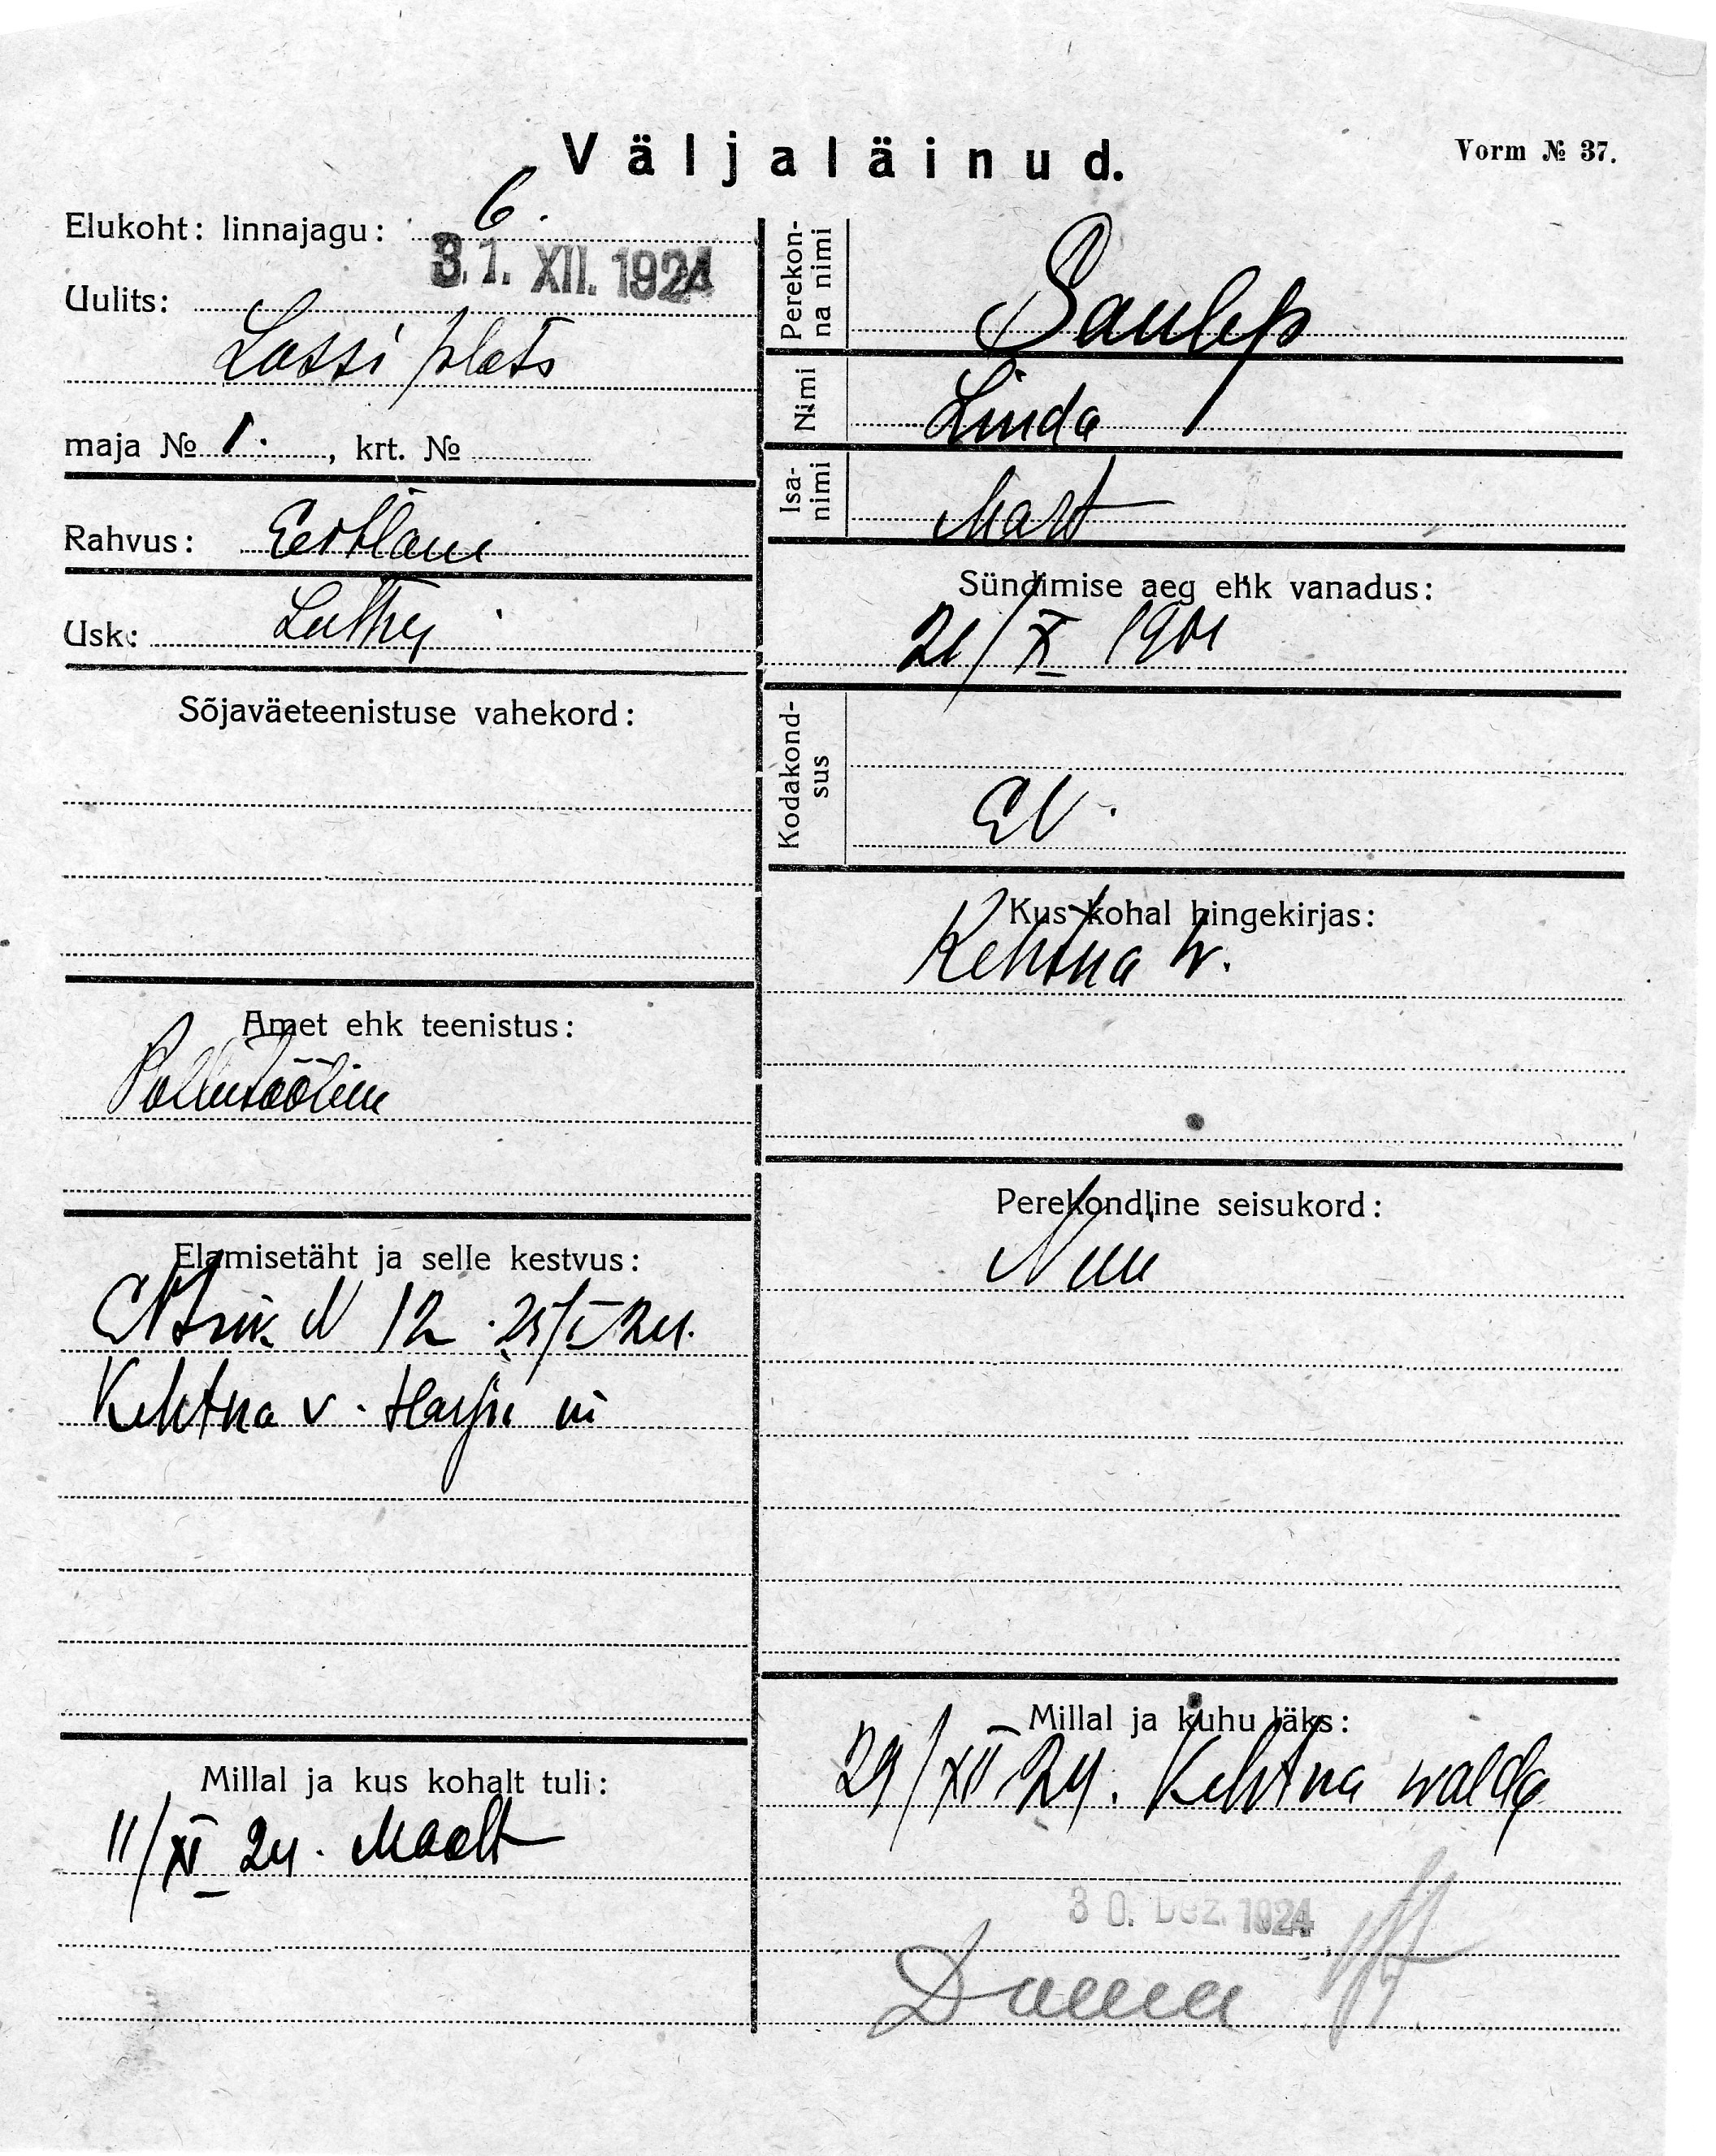 Väljaläinud.
Vorm № 37.
Elukoht: linnajagu: 6.
31. XII. 1924
Uulits:
Lossi plats
maja № 1., krt. №
Rahvus: Eestlane
Usk: Luth
Sõjaväeteenistuse vahekord:
Amet ehk teenistus:
Põllutööline
Elamisetäht ja selle kestvus:
N 12. 25/I 24.
Kehtna v. Harju m
Millal ja kus kohalt tuli:
11/XI 24. Maalt
Perekon-
na nimi
Saulep
Nimi Linda
Isa-
nimi
Mart
Sündimise aeg ehk vanadus:
21/X 1901
Kodakond-
sus
EV.
Kus kohal hingekirjas:
Kehtna w.
Perekondline seisukord:
Millal ja kuhu läks:
29/XII 24. Kehtna walda
30. Dez. 1924